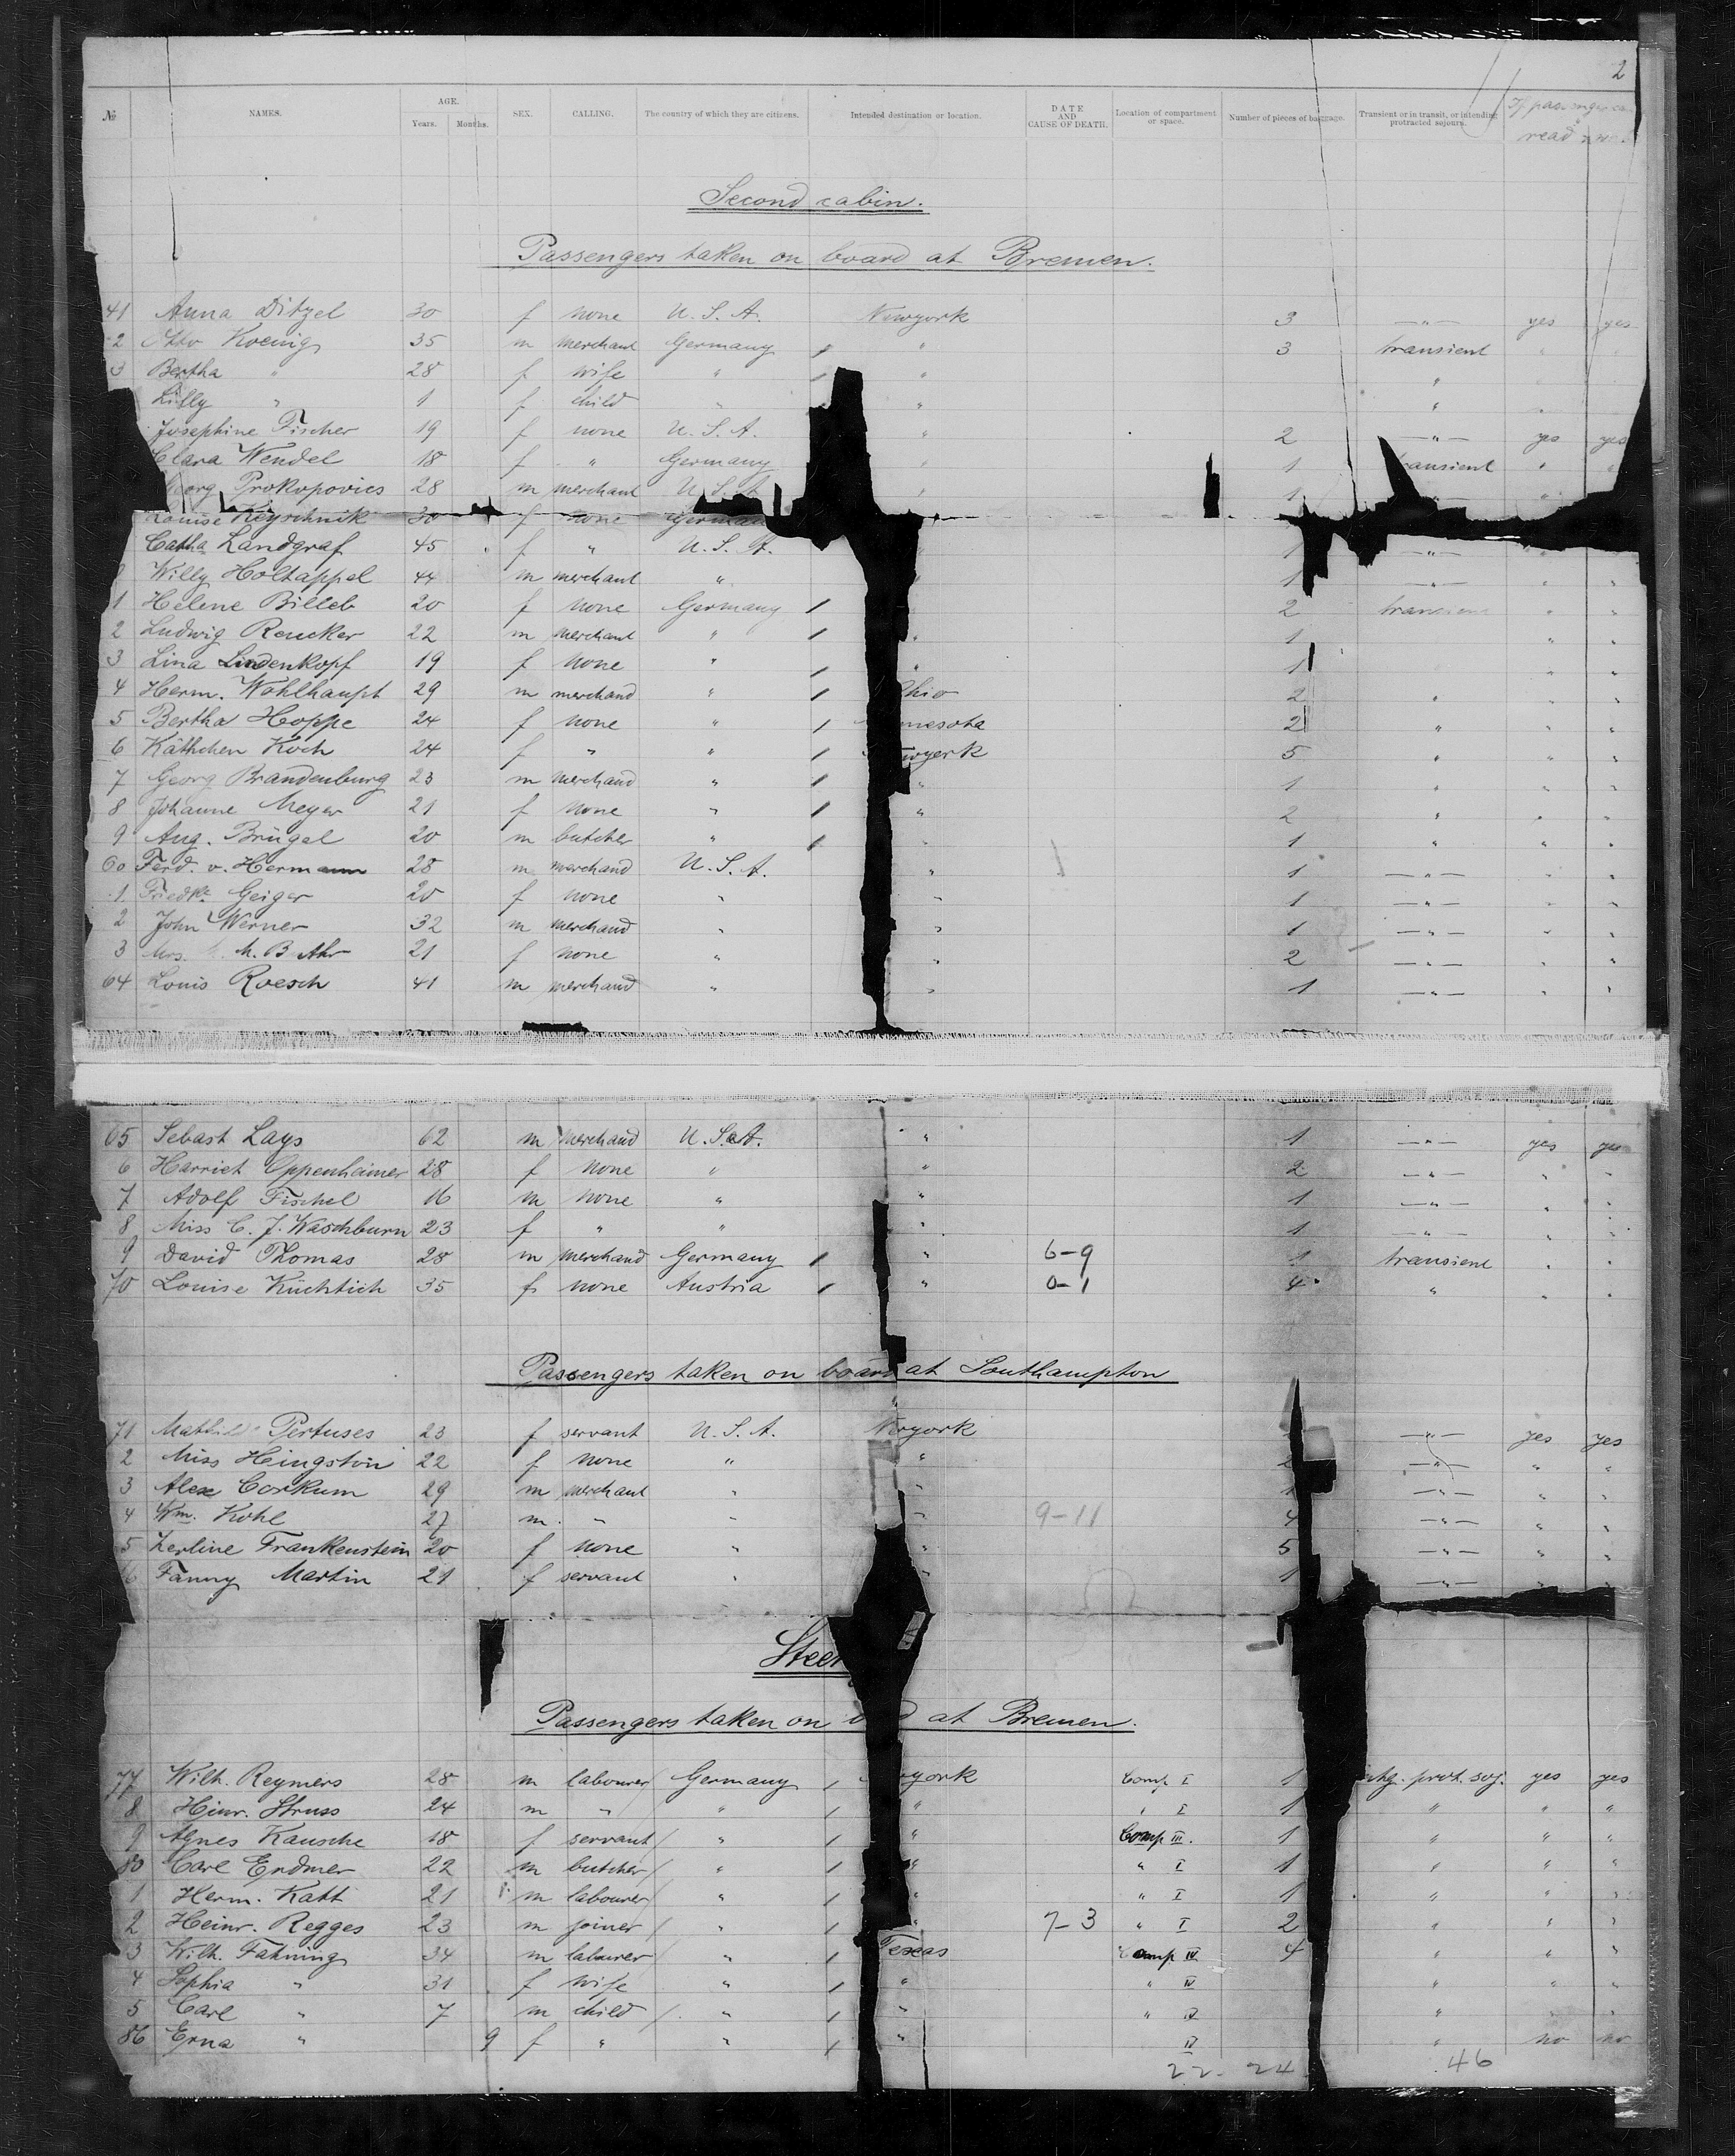 2
№ NAMES. AGE. Years. Months. SEX. CALLING. The country of which they are citizens. Intended destination or location. DATE AND CAUSE OF DEATH. Location of compartment or space. Number of pieces of baggage. Transient or in transit, or intending protracted sojourn. If passenger read
Second cabin.
Passengers taken on board at Bremen.
41 Anna Ditzel 30 f none U. S. A. Newyork 3 —„— yes yes
2 Otto Koenig 35 m merchant Germany / „ 3 transient „ „
3 Bertha „ 28 f wife „ / „ „
Lilly „ 1 f child „ „ „
Josephine Fischer 19 f none U. S. A. „ 2 —„— yes yes
Clara Wendel 18 f „ Germany „ 1 transient „ „
Georg Prokopovics 28 m merchant U. S. A. „ 1 „
Louise 30 f none German
Catha Landgraf 45 f „ U. S. A. 1 —„— „ „
Willy Holtappel 44 m merchant „ „ 1 —„— „ „
1 Helene Billeb 20 f none Germany / 2 transient „ „
2 Ludwig Rencker 22 m merchant „ / „ 1 „ „
3 Lina Lindenkopf 19 f none „ / „ 1 „ „
4 Herm. Wohlhaupt 29 m merchand „ / Ohio 2 „ „ „
5 Bertha Hoppe 24 f none „ / nnesota 2 „ „ „
6 Käthchen Koch 24 f „ „ / wyerk 5 „ „ „
7 Georg Brandenburg 23 m merchand „ / „ 1 „ „ „
8 Johanne Meyer 21 f none „ / „ 2 „ „ „
9 Aug. Brügel 20 m butcher „ / „ 1 „ „ „
60 Ferd. v. Hermann 28 m merchand U. S. A. „ 1 —„— „ „
1 Friedke Geiger 20 f none „ „ 1 —„— „ „
2 John Werner 32 m merchand „ „ 1 —„— „ „
3 Mrs. M. B 21 f none „ „ 2 —„— „ „
64 Louis Roesch 41 m merchand „ „ 1 —„— „ „
65 Sebast Lays 62 m merchand U. S. A. „ 1 —„— yes yes
6 Harriet Oppenheimer 28 f none „ „ 2 —„— „ „
7 Adolf Fischel 16 m none „ „ 1 —„— „ „
8 Miss C. J. Waschburn 23 f „ „ „ 1 —„— „ „
9 David Thomas 28 m merchand Germany / „ 6-9 1 transient „ „
70 Louise Küchtich 35 f none Austria / „ 0-1 4 „ „ „
Passengers taken on board at Southampton
71 Pertuses 23 f servant U. S. A. Neryork —„— yes yes
2 Miss Hingston 22 f none „ „ 2 —„— „ „
3 Alex Corkum 29 m merchant „ „ 1 —„— „ „
4 Wm. Kohl 27 m „ „ „ 9-11 4 —„— „ „
5 Zerline Frankenstein 20 f none „ „ 5 —„— „ „
6 Fanny Martin 21 f servant „ „ 1 —„— „ „
Steer
Passengers taken on d at Bremen.
77 Wilh. Reymers 28 m labourer / Germany / york Comp I 1 prot. soj. yes yes
8 Hinr. Struss 24 m „ „ / „ „ I 1 „ „ „
9 Agnes Kausche 18 f servant / „ / „ Comp III. 1 „ „ „
80 Carl Endmer 22 m butcher / „ / „ „ I 1 „ „ „
1 Herm. Katt 21 m labourer / „ / „ „ I 1 „ „ „
2 Heinr. Regges 23 m joiner / „ / „ 7-3 „ I 2 „ „ „
3 Wilh. Fahning 34 m labourer / „ / Texas Comp IV 4 „ „ „
4 Sophia „ 31 f wife „ / „ „ IV „ „ „
5 Carl „ 7 m child / „ / „ „ IV „ „ „
86 Erna „ 9 f „ „ / „ IV „ no no
22 - 24 46